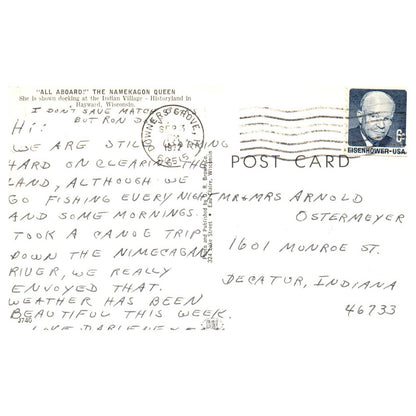 "ALL ABOARD!" THE NAMEKAGON QUEEN
She is shown docking at the Indian Village - Historyland in
Hayward, Wisconsin.
I DON'T SAVE MATCH
BUT RON
HI:
WE ARE STILL
HARD ON CLEARING THE
LAND, ALTHOUGH WE
GO FISHING EVERY NIGHT
AND SOME MORNINGS.
TOOK A CANOE TRIP
DOWN THE NIMECAGAN
RIVER, WE REALLY
ENVOYED THAT.
WEATHER HAS BEEN
BEAUTIFUL THIS WEEK.
LOVE DARLENE
3740
DOWNERS GROVE,
SEP
197
60515
POST CARD
6c
EISENHOWER·USA
MR & MRS ARNOLD
OSTERMEYER
1601 MONROE ST.
DECATUR, INDIANA
46733